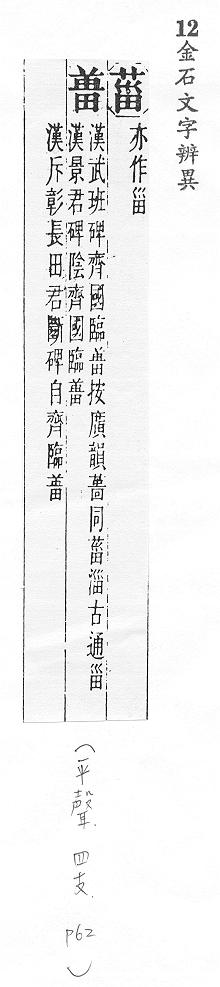 12金石文字辨異
菑 亦作甾
𦾔 漢武班碑齊國臨𦾔按廣韻𦾔同菑淄古通甾
漢景君碑陰齊國臨𦾔
漢斥彰長田君斷碑自齊臨𦾔
(平聲. 四支. p62)